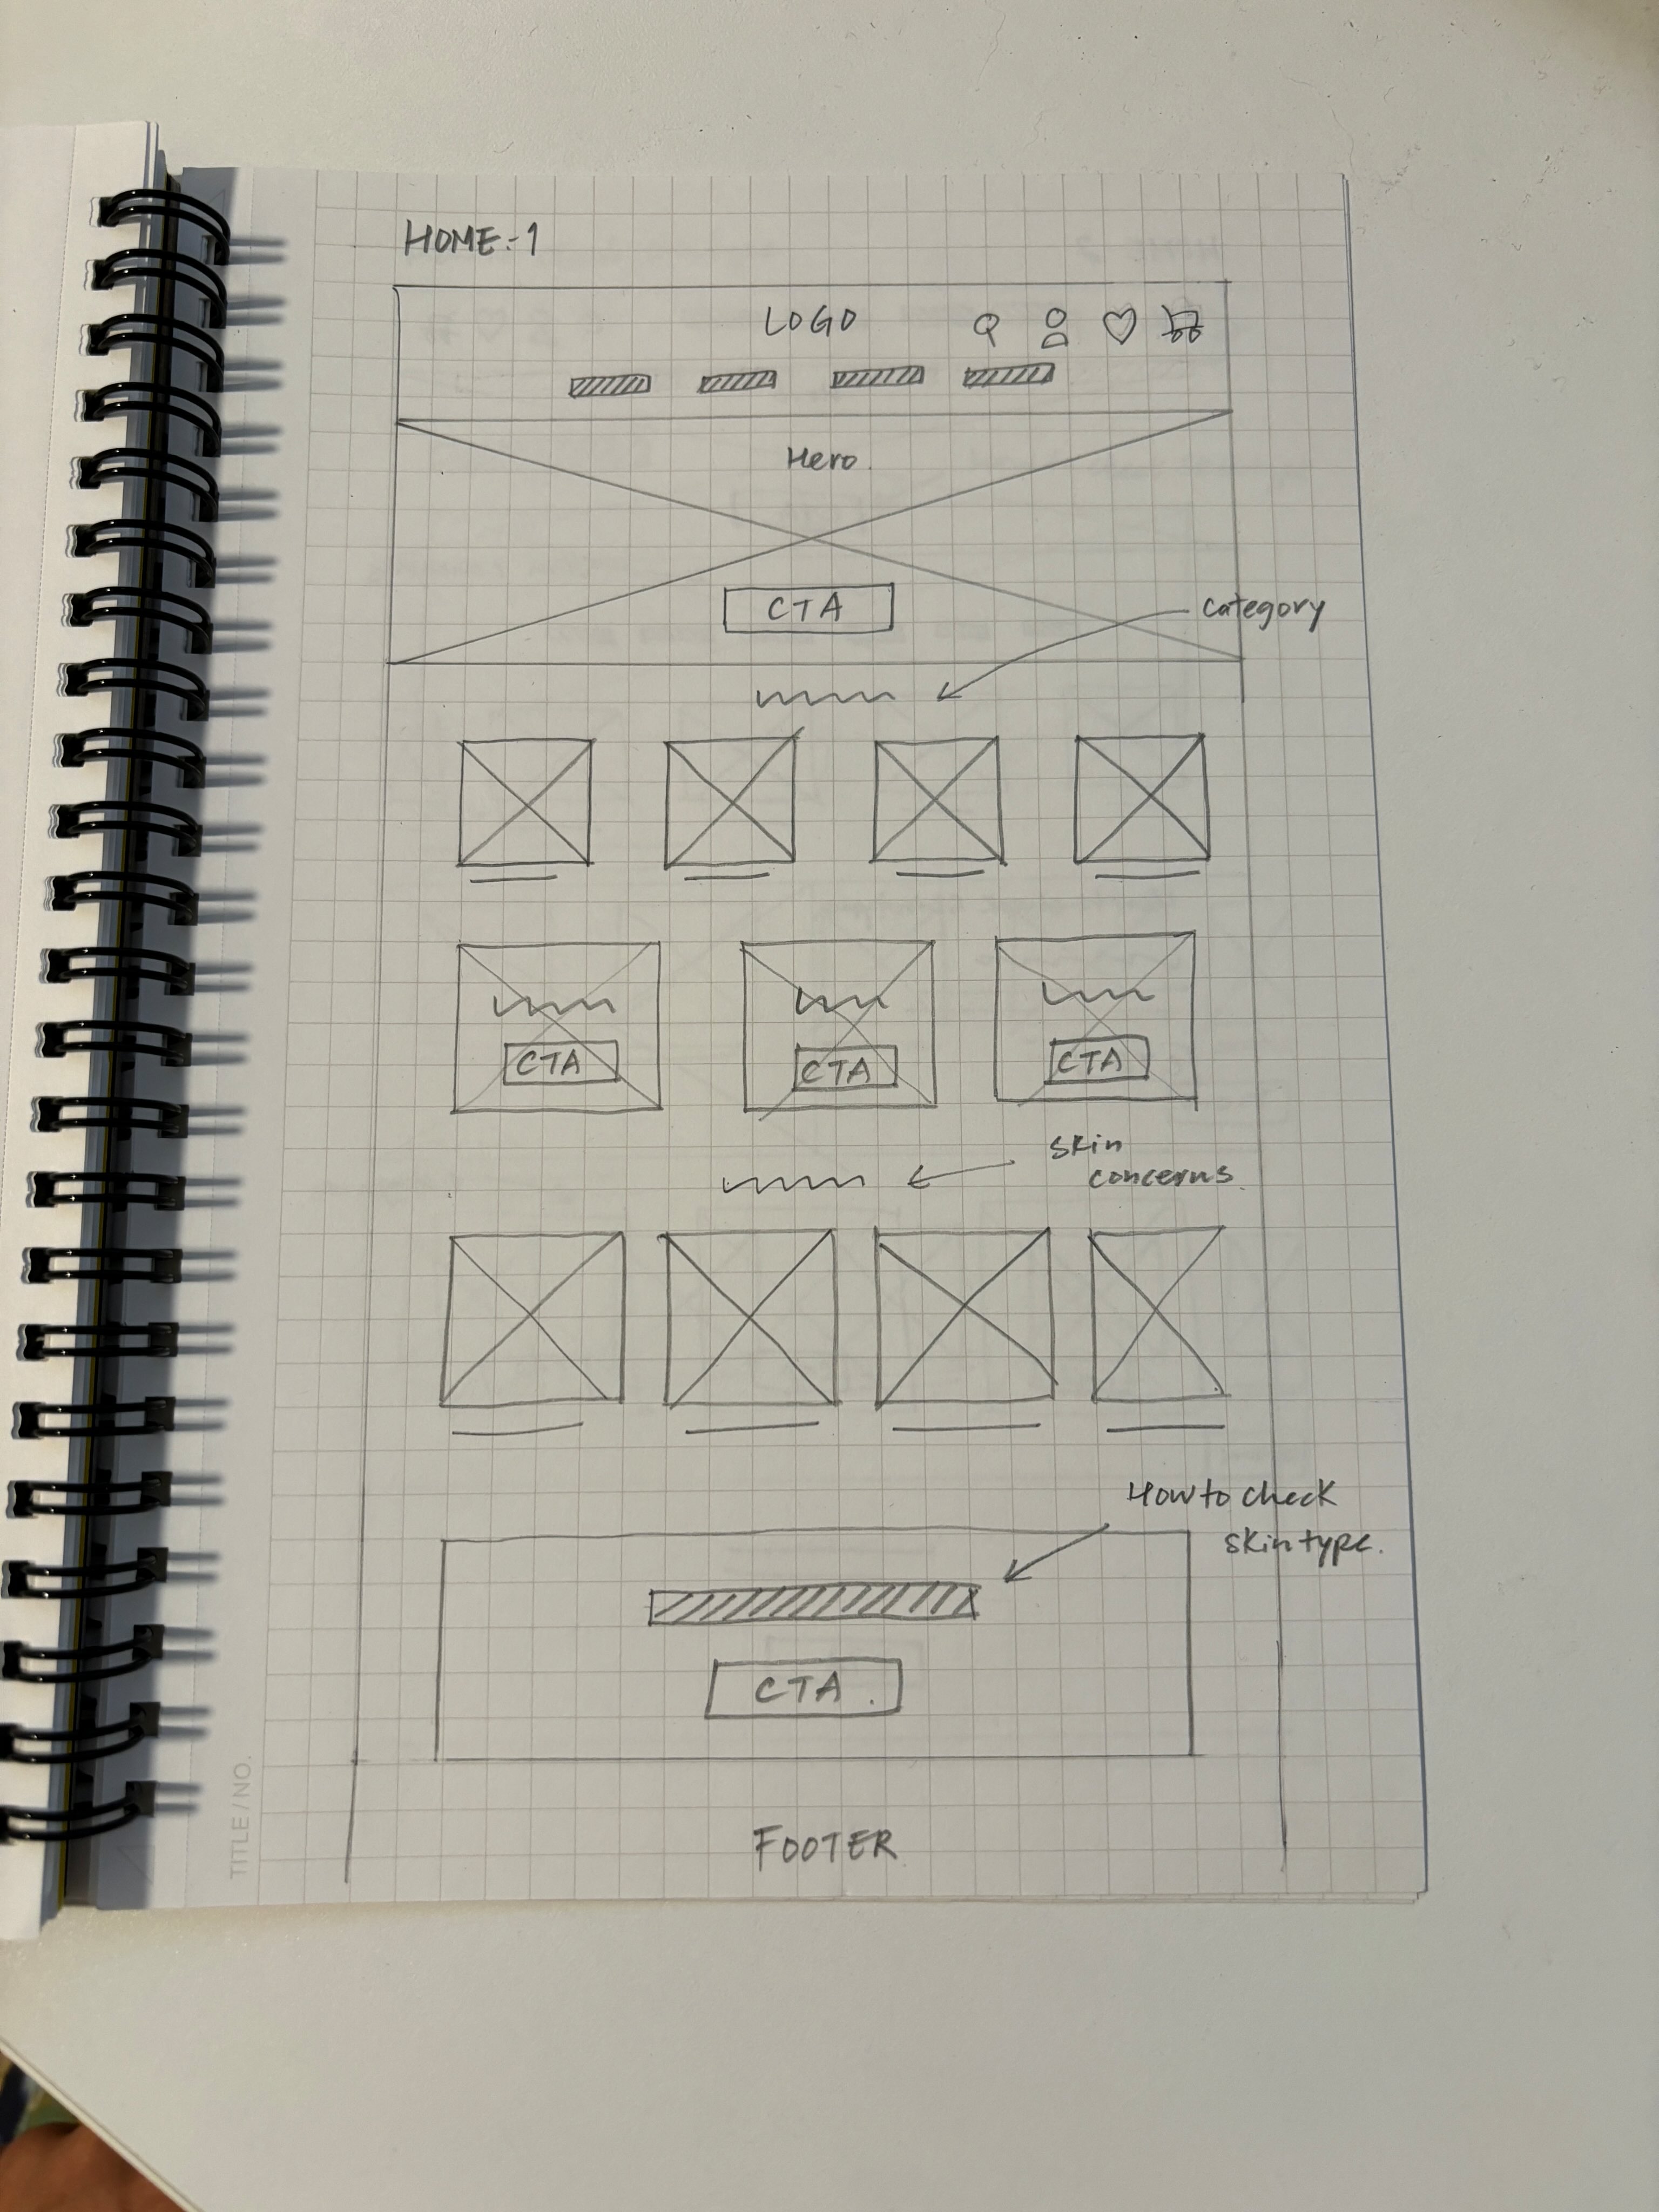 HOME:-1
LOGO
Hero.
CTA
category
CTA
CTA
CTA
skin
concerns.
How to check
skin type.
CTA.
FOOTER
TITLE / NO.